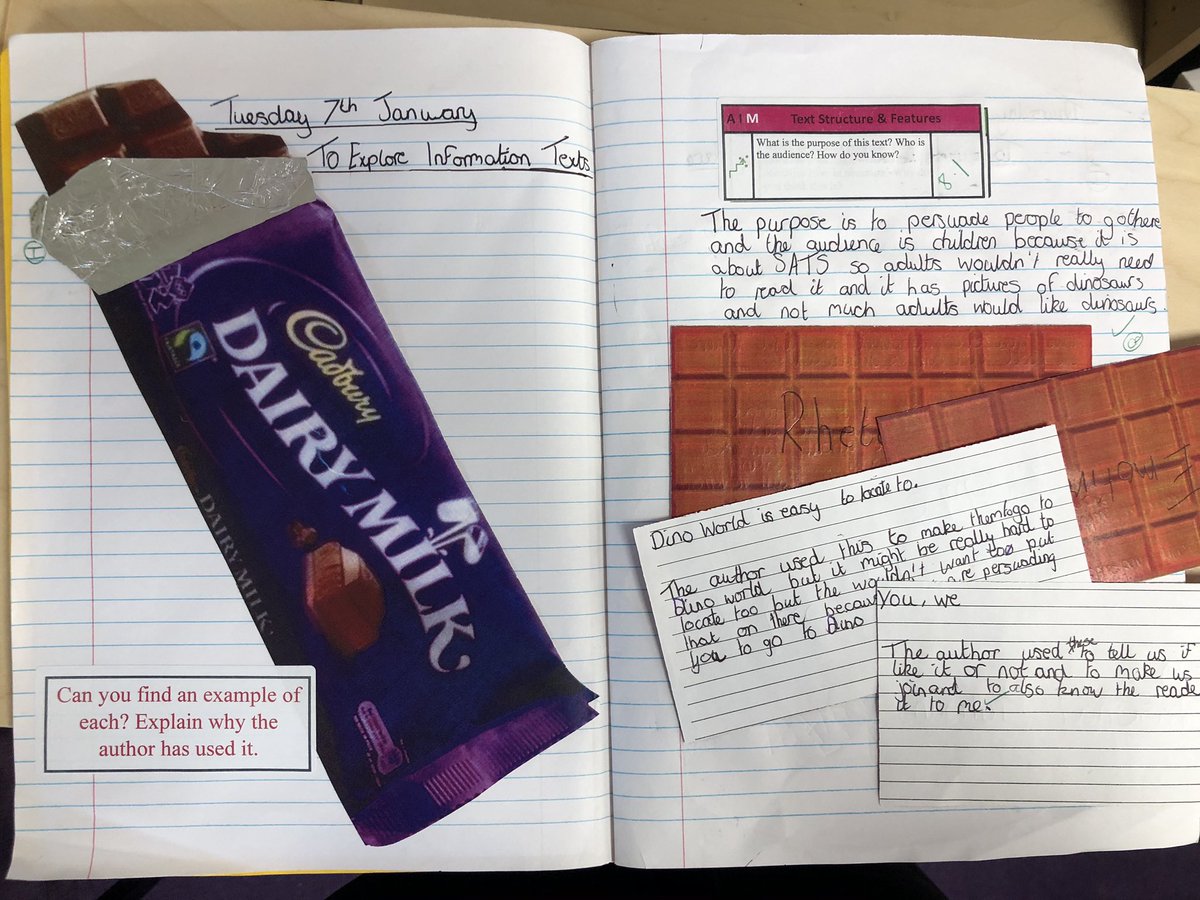 Tuesday 7th January
To Explore Information Texts
Cadbury
DAIRY MILK
DAIRY MILK
Can you find an example of
each? Explain why the
author has used it.
AIM Text Structure & Features
What is the purpose of this text? Who is
the audience? How do you know?
The purpose is to persuade people to go there
and the audience is children because it is
about SATS so adults wouldn't really need
to read it and it has pictures of dinosaurs
and not much adults would like dinosaurs.
Rhet
Dino World is easy to locate to.
The author used this to make them to go to
Dino world, but it might be really hard to
locate too but the wouldn't want too put
that on there becau are persuading
you to go to Dino
You, we
The author used these to tell us if
like it or not and to make us
join and to also know the reade
it to me.